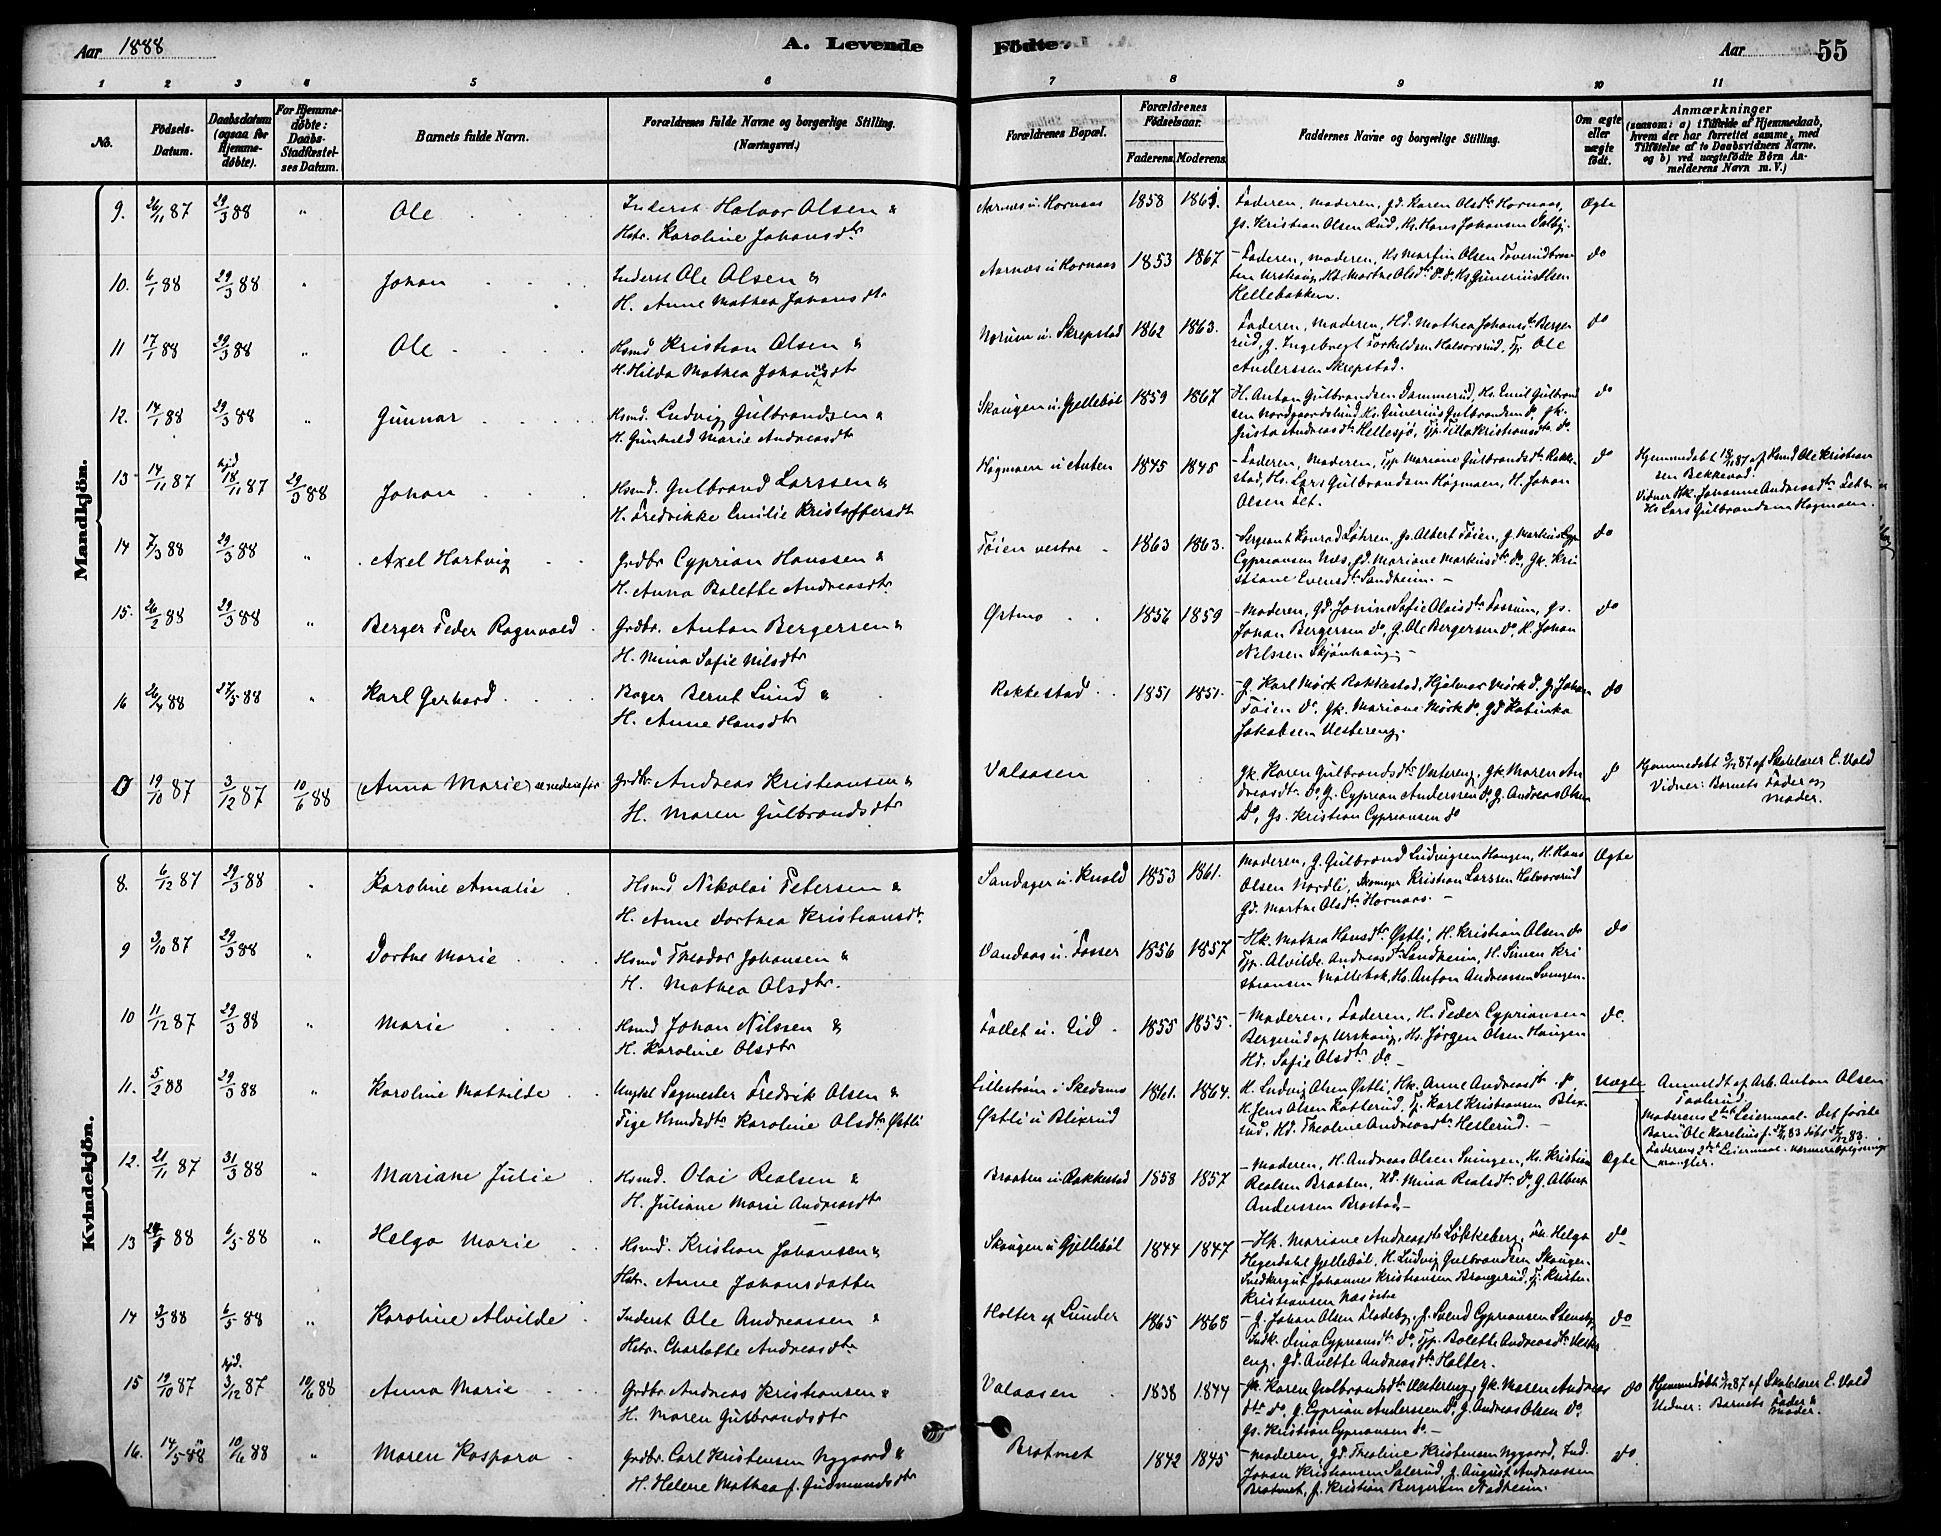 Aar 1888
A. Levende Födte.
Aar 55
1 2 3 4 5 6 7 8 9 10 11
No.
Födsels-Datum.
Daabsdatum (ogsaa for Hjemmedöbte).
For Hjemmedöbte: Daabs-Stadfæstelses Datum.
Barnets fulde Navn.
Forældrenes fulde Navne og borgerlige Stilling. (Næringsvei.)
Forældrenes Bopæl.
Forældrenes Födselsaar.
Faderens. Moderens.
Faddernes Navne og borgerlige Stilling.
Om ægte eller uægte födt.
Anmærkninger
(saasom: a) i Tilfælde af Hjemmedaab, hvem der har forrettet samme, med Tilföielse af to Daabsvidners Navne. og b) ved uægtefödte Börn Anmelderens Navn m. V.)
Mandkjön.
9. 26/11 87 29/3 88 " Ole
Inderst Halvor Olsen &
Hstr. Karoline Johansdtr
Aarnæs u. Hornaas 1858 1861.
Faderen, Moderen, gd. Karen Olsdtr Hornaas,
gs. Kristian Olsen Rud, Hs. Hans Johansen Dalby.
Ægte
10. 6/1 88 29/3 88 " Johan
Inderst Ole Olsen &
H. Anne Mathea Johansdtr
Aarnæs u Hornaas 1853 1867
Faderen, Moderen, Hs Martin Olsen
Hellebakken.
do
11 17/1 88 29/3 88 " Ole
Hsmd Kristian Olsen &
H. Hilda Mathea Johansdtr
Norum u. Skrepstad 1862 1863.
Faderen, Moderen, Hd. Mathea Johansdtr Berge
rud, g. Ingebregt Torkeldsen Halvorsrud, Tj. Ole
Anderssen Skrepstad.
do
12. 14/1 88 29/3 88 " Gunnar
Hsmd. Ludvig Gulbrandsen &
H. Gunhild Marie Andreasdtr
Skaugen u. Gjellebøl 1859 1867
H. Anton Gulbrandsen Dammerud, Hs. Emil Gulbrand
sen Nordgaardslund, Hs. Gunerius Gulbrandsen do, Gk.
Gusta Andreasdtr Hellesjø, Tjp. Tilla Kristiansdtr do.
do
13 14/11 87 hjd. 18/11 87 29/3 88 Johan
Hsmd. Gulbrand Larssen &
H. Fredrikke Emilie Kristoffersdtr
Høgmoen u Auten 1845 1845
Faderen, Moderen, Tjp Mariane Gulbrandsdtr Rakke-
stad, Hs. Lars Gulbrandsen Høgmoen, H. Johan
Olsen Fet.
do
Hjemmedøbt 18/11 87 af Hsmd Ole Kristian
sen Bekkevad.
Vidner Hk. Johanne Andreasdtr
Hs Lars Gulbrandsen Høgmoen.
14 7/3 88 29/3 88 " Axel Hartvig
Grdbr Cyprian Hanssen &
H. Anna Bolette Andreasdtr
Tøien vestre 1863 1863.
Sergeant Konrad Løhren, gs. Albert Tøien, g. Martin
Cypriansen Næs, gd. Mariane Markusdtr do, Gk. Kri
stiane Evensdtr Sandheim. –
do
15. 26/2 88 29/3 88 " Berger Peder Ragnvald
Grdbr. Anton Bergersen &
H. Mina Sofie Nilsdtr
Østmo 1856 1859
Moderen, Gd. Jonine Sofie Olaisdtr Fossum, gs.
Johan Bergersen do, G. Ole Bergersen do, H. Johan
Nilssen Skjønhaug. –
do
16 26/4 88 27/5 88 " Karl Gerhard
Bager Bernt Lund &
H. Anne Hansdtr
Rakkestad 1851 1851.
G. Karl Mørk Rakkestad, Hjalmar Mørk do, g. Johan
Tøien do, Gk. Mariane Mørk do, Gd Katinka
Jakobsen Vestereng.
do
0 19/10 87 3/12 87 10/6 88 (Anna Marie) se nedenfor
Grdbr. Andreas Kristiansen &
H. Maren Gulbrandsdtr
Valaasen
Gk. Karen Gulbrandsdtr Vestereng, Gk. Maren An
dreasdtr do, G. Cyprian Anderssen do, G. Andreas Olsen
do, Gs. Kristian Cypriansen do
do
Hjemmedøbt 3/12 87 af Skolelærer E. Vold
Vidner: Barnets Fader og
Moder.
Kvindekjön.
8. 6/12 87 29/3 88 " Karoline Amalie
Hsmd Nikolai Petersen &
H. Anne Dorthea Kristiansdtr.
Sandager u. Knold 1853 1861.
Moderen, g. Gulbrand Ludvigsen Haugen, H. Hans
Olsen Nordli, Skomager Kristian Larssen Halvorsrud
Gd. Marthe Olsdtr Hornaas. –
Ægte
9 3/10 87 29/3 88 " Dorthe Marie
Hsmd Theodor Johansen &
H. Mathea Olsdtr.
Vandaas u. Fosser 1856 1857
Hk. Mathea Hansdtr Østli, H. Kristian Olsen do
Tjp. Alvilde Andreasdtr Sandheim, H. Simen Kri
stiansen Møllebak, Hs. Anton Andreassen Svingen.
do
10 11/12 87 29/3 88 " Marie
Hsmd Johan Nilssen &
H. Karoline Olsdtr
Follet u. Eid 1855 1855.
Moderen, Faderen, H. Peder Cypriansen
Bergerud af Urskoug, Hs. Jørgen Olsen Haugen
Hd. Sofie Olsdtr do –
do.
11. 5/2 88 29/3 88 " Karoline Mathilde
Ungkl Sagmester Fredrik Olsen &
Pige Hsmdsdtr Karoline Olsdtr. Østli
Lillestrøm i Skedsmo
Østli u Blixrud 1861. 1864.
H. Ludvig Olsen Østli, Hk. Anne Andreasdtr do,
H. Jens Olsen Kallerud, Tj. Karl Kristiansen Blix
rud, Hd. Theoline Andreasdtr Hellerud. –
Uægte
Anmeldt af Arb. Anton Olsen
Moderens 2det Leiermaal. Det første
Barn: Ole Karelius f.
Faderens 2det Leiermaal. Nærmere Oplysning
mangler.
12. 21/11 87 31/3 88 " Mariane Julie
Hsmd. Olai Realsen &
H. Juliane Marie Andreasdtr
Braaten u Rakkestad 1858 1857
Moderen, H. Andreas Olsen Svingen, Hs. Kristian
Realsen Braaten, Hd. Mina Realsdtr do, G. Albert
Anderssen Brostad. –
Ægte
13 88 6/5 88 " Helga Marie
Hsmd. Kristian Johansen &
Hstr. Anne Johansdatter
Skougen u Gjellebøl 1844 1847
Hk. Mariane Andreasdtr Løkkeberg, Frk. Helga
Hegerdahl Gjellebøl, H. Ludvig Gulbrandsen Skougen
Snedkergut Johannes Kristiansen Brangerud, Tj. Kristen
Kristiansen Næsøstre
do
14 3/3 88 6/5 88 " Karoline Alvilde
Inderst Ole Andreassen &
Hstr. Charlotte Andreasdtr
Holter af Lunder 1865 1868
g. Johan Olsen Fladeby, g. Svend Cypriansen Stensby
Indk. Lina Cypriansdtr do, Tjp. Bolette Andreasdtr Vester
eng. Gd. Anette Andreasdtr Holter.
do
15 19/10 87 hjd. 3/12 87 10/6 88 Anna Marie
Grdbr Andreas Kristiansen &
H. Maren Gulbrandsdtr
Valaasen 1838 1844
Gk. Karen Gulbrandsdtr Vestereng, Gk. Maren Andreas
dtr do, g. Cyprian Anderssen do, g. Andreas Olsen do,
Gs. Kristian Cypriansen do –
do
Hjemmedøbt 3/12 87 af Skolelærer E. Vold
Vidner: Barnets Fader &
Moder.
16. 14/5 88 10/6 88 " Maren Kaspara
Grdbr. Carl Kristensen Nygaard &
H. Helene Mathea f. Gudmundsdtr
Bratvet 1842 1845
Moderen, Gd. Theoline Kristensen Nygaard, Ind.
Johan Kristiansen Salerud, g. August Andreassen
Bratvet, g. Kristian Bergersen Nadheim.
do